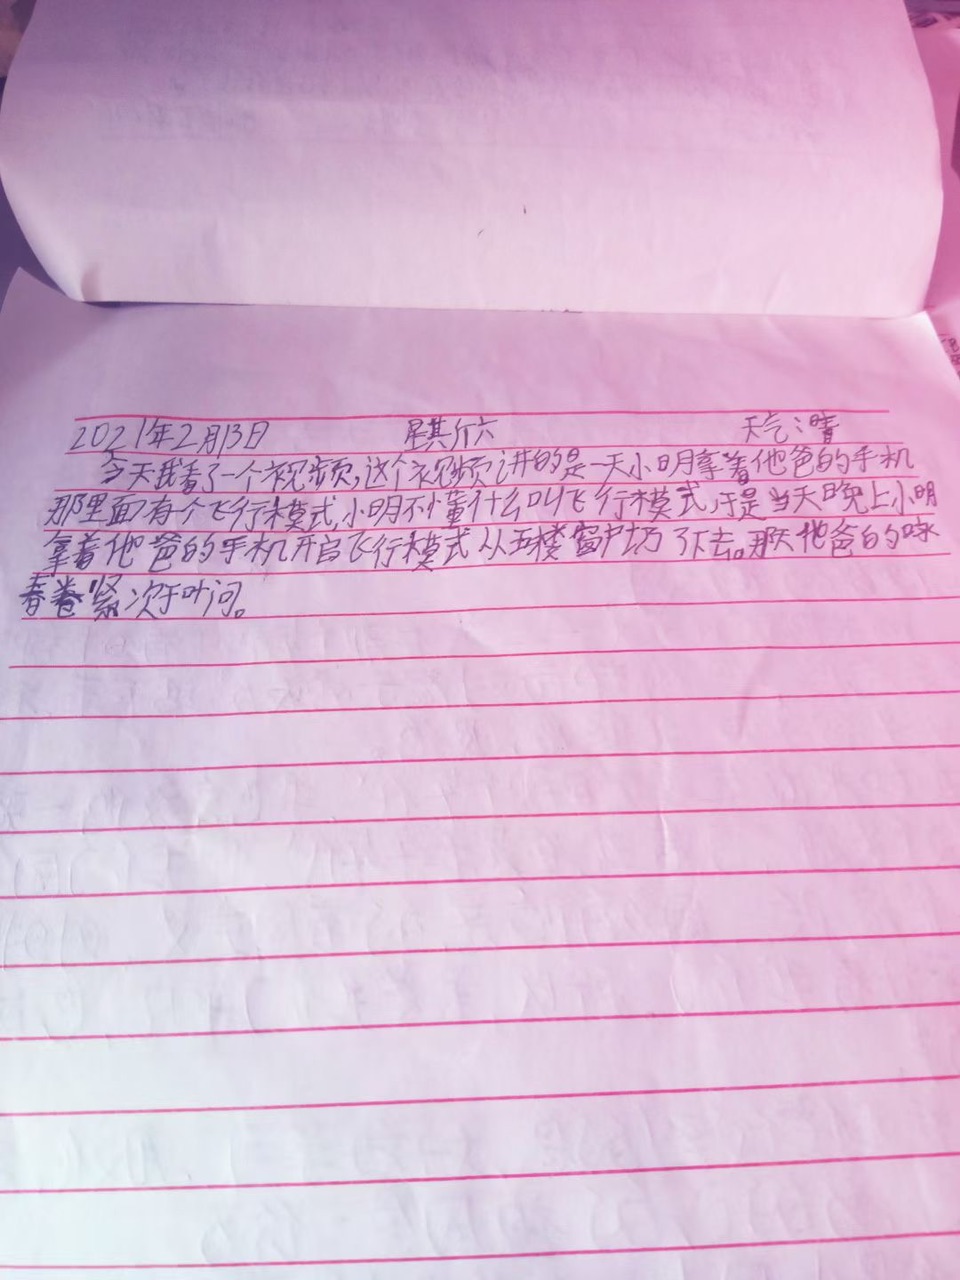 2021年2月13日 星其介六 天气:晴
今天我看了一个视频,这个视频讲的是一天小明拿着他爸的手机
那里面有个飞行模式,小明不懂什么叫飞行模式,于是当天晚上小明
拿着他爸的手机开启飞行模式从五楼窗户扔了下去。那天他爸的咏
春卷紧次于叶问。